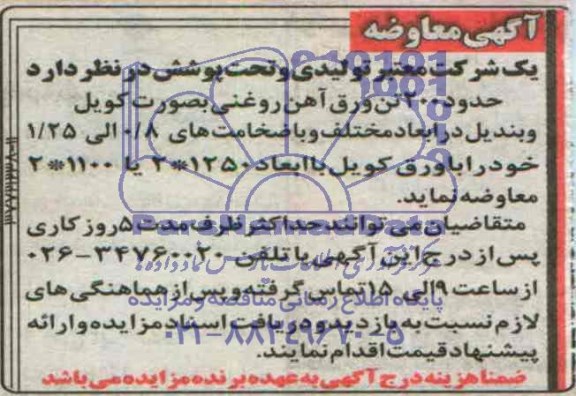 آگهی معاوضه
یک شرکت معتبر تولیدی و تحت پوشش در نظر دارد
حدود ۲۰۰ تن ورق آهن روغنی بصورت کویل
و بندیل در ابعاد مختلف و با ضخامت های ۰/۸ الی ۱/۲۵
خود را با ورق کویل با ابعاد ۱۲۵۰*۲ یا ۱۱۰۰*۲
معاوضه نماید.
متقاضیان می توانند حداکثر ظرف مدت ۵ روز کاری
پس از درج این آگهی با تلفن ۳۴۷۶۰۰۲۰-۰۲۶
از ساعت ۹ الی ۱۵ تماس گرفته و پس از هماهنگی های
لازم نسبت به بازدید و دریافت اسناد مزایده و ارائه
پیشنهاد قیمت اقدام نمایند.
ضمنا هزینه درج آگهی به عهده برنده مزایده می باشد
پایگاه اطلاع رسانی مناقصه و مزایده
۰۲۱-۸۸۳۴۹۶۷۰-۵